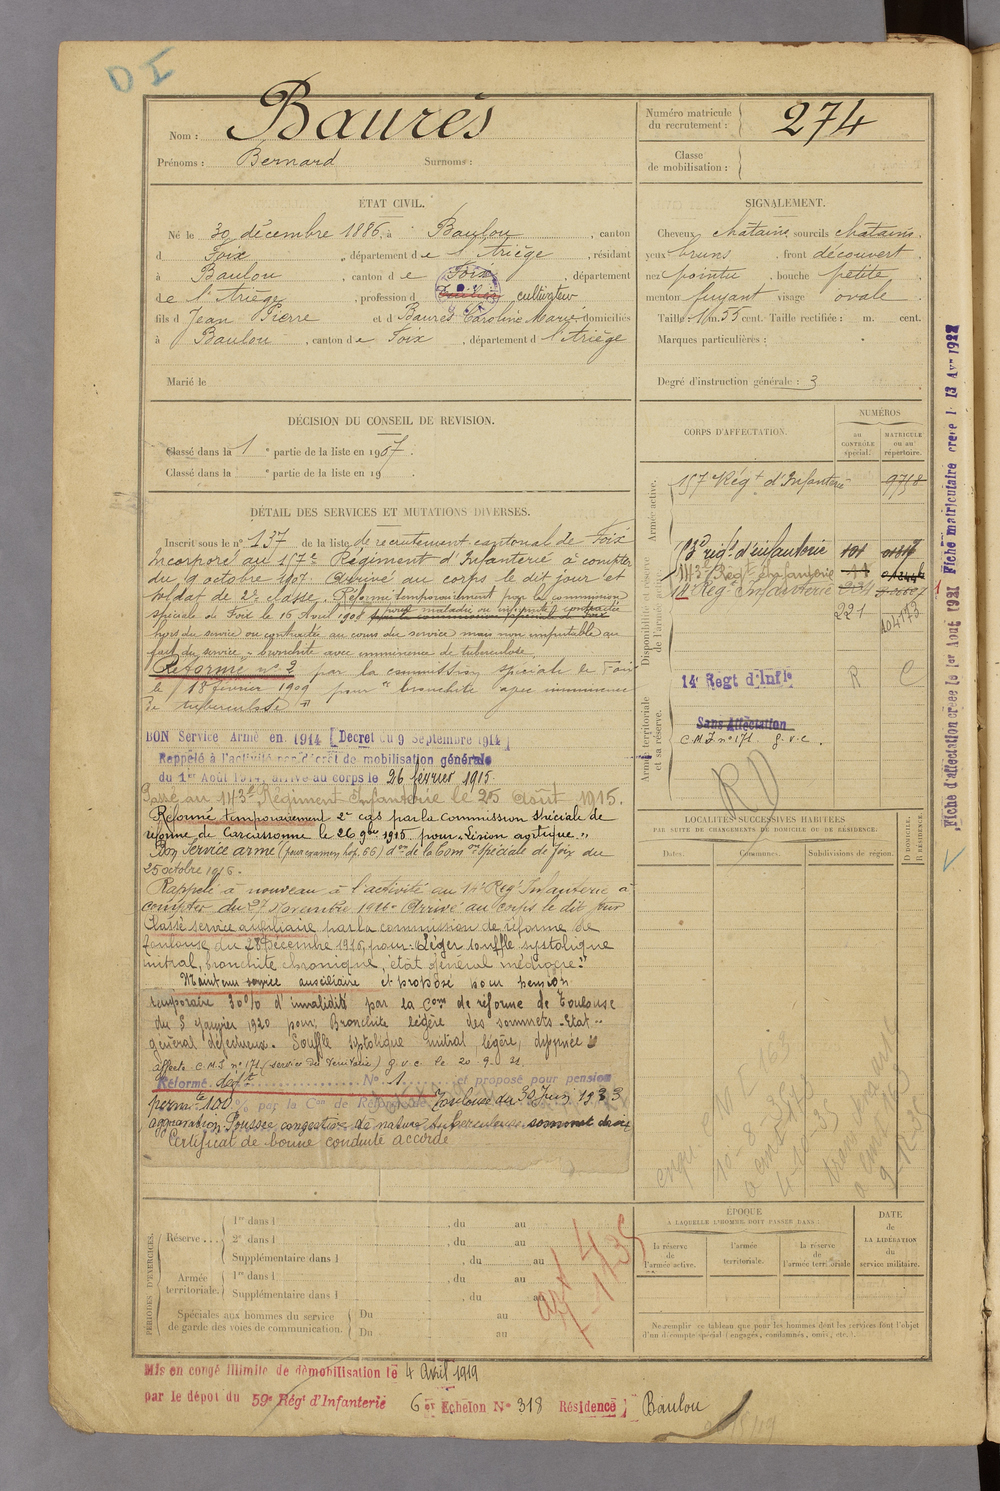 D I
Nom : Baurès
Prénoms : Bernard Surnoms :
Numéro matricule du recrutement : 274
Classe de mobilisation :
ÉTAT CIVIL.
Né le 30 décembre 1886, à Baulou, canton
d Foix, département de l'Ariège, résidant
à Baulou, canton de Foix, département
de l'Ariège, profession d cultivateur
fils d Jean Pierre et d Baurès Caroline Marie domiciliés
à Baulou, canton de Foix, département d l'Ariège
Marié le
SIGNALEMENT.
Cheveux chatains sourcils chatains
yeux bruns, front découvert
nez pointu, bouche petite
menton fuyant visage ovale
Taille : 1 m. 55 cent. Taille rectifiée : m. cent.
Marques particulières :
Degré d'instruction générale : 3
DÉCISION DU CONSEIL DE REVISION.
Classé dans la 1e partie de la liste en 1907.
Classé dans la e partie de la liste en 19
DÉTAIL DES SERVICES ET MUTATIONS DIVERSES.
Inscrit sous le n° 137 de la liste de recrutement cantonal de Foix
Incorporé au 157e Régiment d'Infanterie à compter
du 9 octobre 1907. Arrivé au corps le dit jour et
soldat de 2e classe. Réformé temporairement par la commission
spéciale de Foix le 16 Avril 1908 pour maladie ou infirmité contractée
hors du service ou contractée au cours du service mais non imputable au
fait du service - bronchite avec imminence de tuberculose.
Réformé n° 2 par la commission spéciale de Foix
le 18 février 1909 pour "bronchite avec imminence
de tuberculose"
BON Service Armé en 1914 [Decret du 9 Septembre 1914]
Rappelé à l'activité par décret de mobilisation générale
du 1er Août 1914, arrivé au corps le 26 février 1915.
Passé au 143e Régiment Infanterie le 25 Août 1915.
Réformé temporairement 2e cas par la Commission Spéciale de
réforme de Carcassonne le 26 9bre 1915 pour "Lésion aortique."
Bon Service armé (pour examen hop. 66) don de la Comon Spéciale de Foix du
25 octobre 1916.
Rappelé à nouveau à l'activité au 14e Reg' Infanterie à
compter du 27 Novembre 1916. Arrivé au corps le dit jour
Classé service auxiliaire par la commission de réforme de
Toulouse du 28 Décembre 1916, pour: Léger souffle systolique
mitral, bronchite chronique, état général médiocre."
Maintenu service auxiliaire et proposé pour pension
temporaire 30% d'invalidité par la Com de réforme de Toulouse
du 5 Janvier 1920 pour; Bronchite légère des sommets. Etat
général défectueux. Souffle systolique mitral, légère, dyspnée
affecté C.M.I. n° 171 (service du Territoire) g.v.c. le 20 9 21.
Réformé N° 1 et proposé pour pension
permte 100% par la Con de Réforme de Toulouse du 30 Juin 1933
aggravation Poussée congestive de nature tuberculeuse
Certificat de bonne conduite accordé
CORPS D'AFFECTATION.
NUMÉROS
AU CONTRÔLE spécial.
MATRICULE ou au répertoire.
Armée active.
157e Régt d'Infanterie 9758
Disponibilité et réserve de l'armée active.
d'infanterie
143e Regt Infanterie
14e Regt Infanterie
221
14e Regt d'Infie R C
Armée territoriale et sa réserve.
Sans Affectation
C.M.I. n° 171. g.v.c.
RD
LOCALITÉS SUCCESSIVES HABITÉES
PAR SUITE DE CHANGEMENTS DE DOMICILE OU DE RÉSIDENCE.
D DOMICILE. R RÉSIDENCE.
Dates. Communes. Subdivisions de région.
Fiche d'affectation créée le 1er Août 1921 Fiche matriculaire créée le 13 Avr 1922
PÉRIODES D'EXERCICES.
Réserve
1re dans l , du au
2e dans l , du au
Supplémentaire dans l , du au
Armée territoriale.
1re dans l , du au
Supplémentaire dans l , du au
Spéciales aux hommes du service de garde des voies de communication.
Du au
Du au
ÉPOQUE
A LAQUELLE L'HOMME DOIT PASSER DANS :
la réserve de l'armée active.
l'armée territoriale.
la réserve de l'armée territoriale
DATE de LA LIBÉRATION du service militaire.
Ne remplir ce tableau que pour les hommes dont les services font l'objet
d'un décompte spécial (engagés, condamnés, omis, etc.).
Mis en congé illimité de démobilisation le 4 Avril 1919
par le dépôt du 59e Régt d'Infanterie 6e Echelon N° 318 Résidence] Baulou